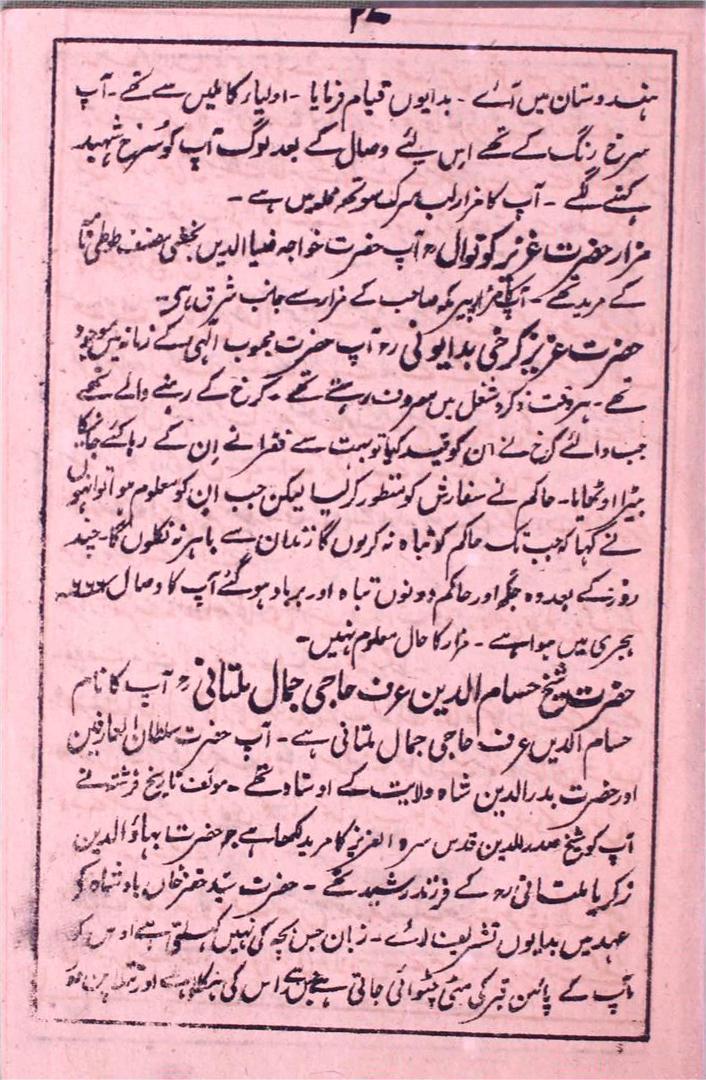 ہندوستان میں آئے - بدایوں قیام فرمایا - اولیاء کاملیں سے تھے - آپ
سرخ رنگ کے تھے اس لئے وصال کے بعد لوگ آپ کو سُرخ شہید
کہنے لگے - آپ کا مزار لب سڑک سوتھ محلہ میں ہے -
مزار حضرت عزیز کوتوال رح آپ حضرت خواجہ ضیا الدین نخشبی مصنف طوطی نامہ
کے مرید تھے - آپکا مزار پیر مکہ صاحب کے مزار سے جانب شرق ہے -
حضرت عزیز کرخی بدایونی رح آپ حضرت محبوب الٰہی کے زمانہ میں موجود
تھے - ہر وقت ذکر و شغل میں مصروف رہتے تھے - کرخ کے رہنے والے تھے
جب والئے کرخ نے ان کو قید کیا تو بہت سے فقرا نے ان کے رہا کئے جانیکا
بیڑا اوٹھایا - حاکم نے سفارش کو منظور کر لیا لیکن جب ان کو معلوم ہوا تو انہوں
نے کہا کہ جب تک حاکم کو تباہ نہ کروں گا زندان سے باہر نہ نکلوں گا - چند
روز کے بعد وہ جگہ اور حاکم دونوں تباہ اور برباد ہو گئے آپ کا وصال ۶۶۶ھ
ہجری میں ہوا ہے - مزار کا حال معلوم نہیں -
حضرت شیخ حسام الدین عرف حاجی جمال ملتانی رح آپ کا نام
حسام الدین عرف حاجی جمال ملتانی ہے - آپ حضرت سلطان العارفین
اور حضرت بدر الدین شاہ ولایت کے اوستاد تھے - مولف تاریخ فرشتہ نے
آپ کو شیخ صدر الدین قدس سرہ العزیز کا مرید لکھا ہے جو حضرت بہاؤ الدین
زکریا ملتانی رح کے فرزند رشید تھے - حضرت سید خضر خاں بادشاہ کے
عہد میں بدایوں تشریف لائے - زبان جس بچہ کی نہیں کھلتی ہے اوس کو
آپ کے پائیں قبر کی مٹی چٹوائی جاتی ہے جس سے اس کی